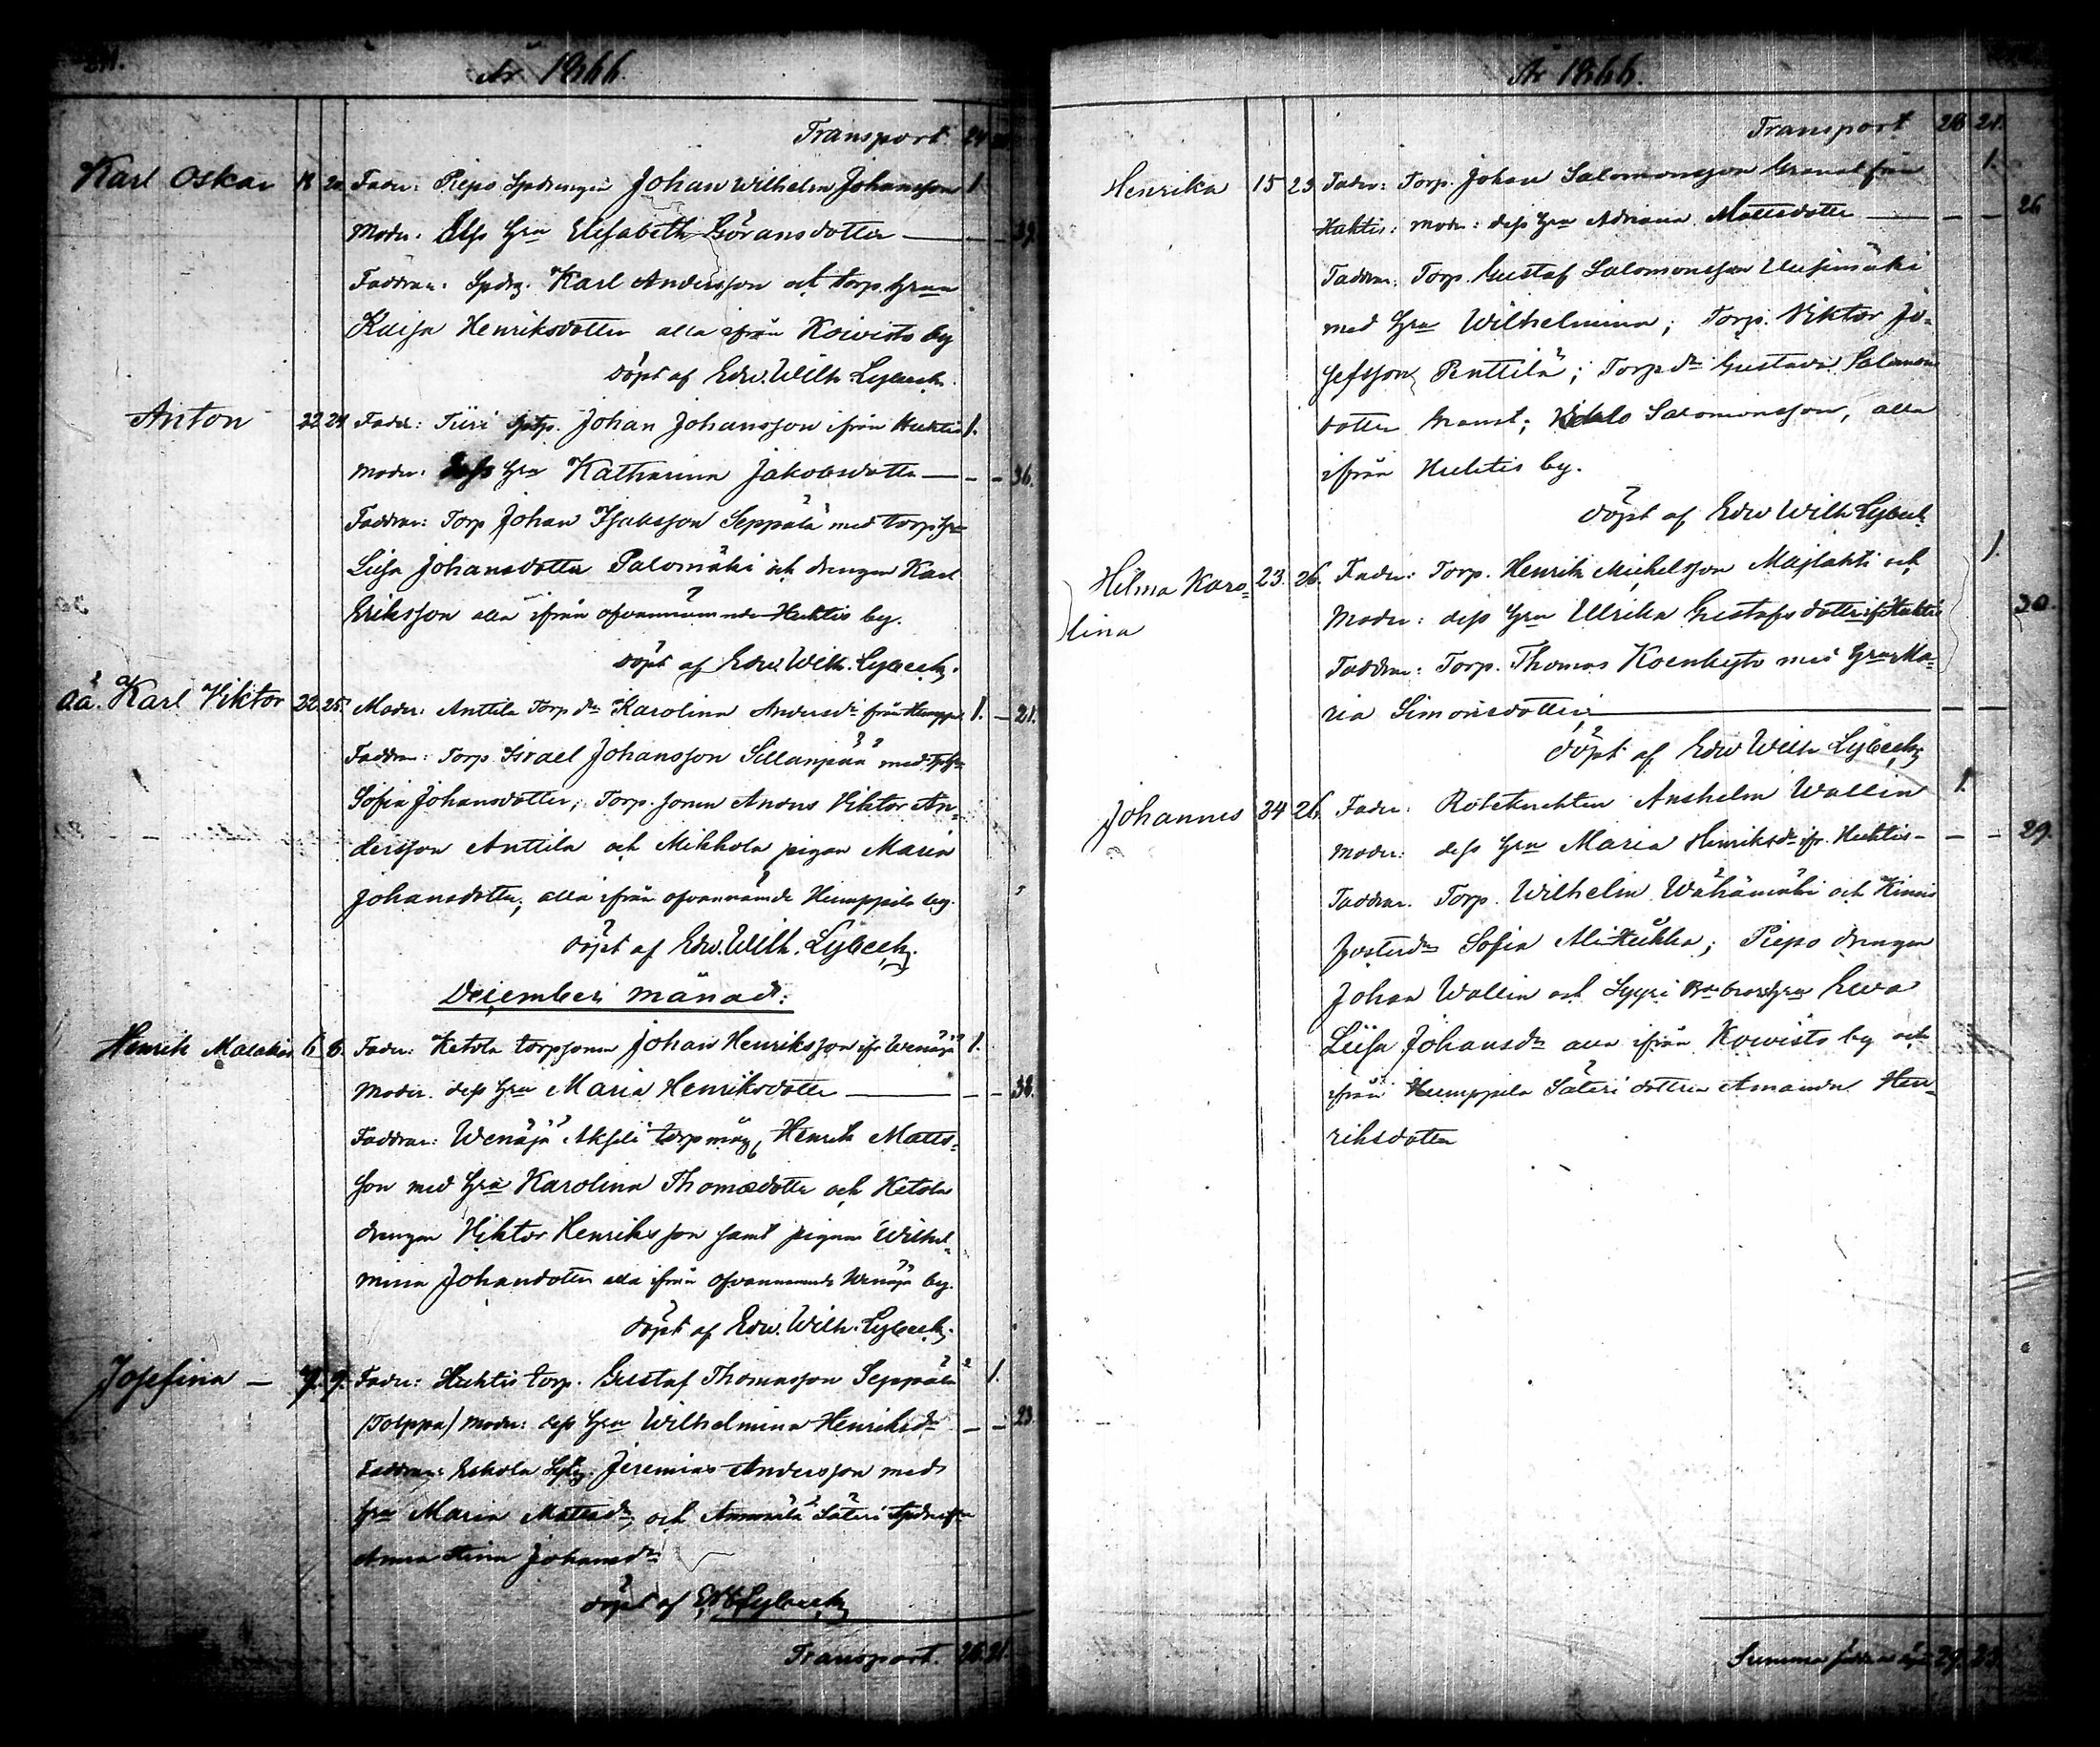 År 1866.
Transport 24
Karl Oskar 18 20 Fader: Piepo Johan Wilhelm Johansson 1
Moder: dess Hru Elisabeth Göransdotter — — 39.
Faddrar: Karl Andersson och torp. hrun
Kaisa Henriksdotter alla ifrån Koivisto by
döpt af Edw. Wilh. Lybeck.
Anton 22 24 Fader: Tiiri Johan Johansson ifrån Huhtis 1.
Moder: dess hru Katharina Jakobsdotter — - - 36.
Faddrar: Torp Johan Isaksson Seppälä med torp hru
Liisa Johansdotter Palomäki och drengen Karl
Eriksson alla ifrån ofvannämnde Huhtis by.
döpt af Edw. Wilh. Lybeck.
oä. Karl Viktor 22 25 Moder: Anttila Torp dr Karolina Andersdr från Humpp. 1. — 21.
Faddrar: Torp. Israel Johansson Sillanpää med
Sofia Johansdotter; Torp. sonen Anders Viktor An-
dersson Anttila och Mikkola pigan Maria
Johansdotter, alla ifrån ofvannämnde Humppila by.
döpt af Edw. Wilh. Lybeck.
December månad:
Henrik Malakias 6 8. Fader: Ketola torpsonen Johan Henriksson ifr Wenäjä 1.
Moder. dess hru Maria Henriksdotter — — - 38.
Faddrar: Wenäjä Akseli torp måg, Henrik Matts-
son med hru Karolina Thomasdotter och Ketola
drengen Viktor Henriksson samt pigan Wilhel-
mina Johansdotter alla ifrån ofvannämnde Wenäjä by.
döpt af Edw. Wilh. Lybeck.
Josefina — 7. 9. Fader: Huhtis torp. Gustaf Thomasson Seppälä 1.
(Tolppa) Moder: dess hru Wilhelmina Henriksdr — — 23.
Faddrar: Eskola Jeremias Andersson med
hru Maria Mattsdr, och Annuila Säteri
Anna Stina Johansdr
döpt af EWLybeck
Transport. 26. 21.
År 1866.
Transport 26 21.
Henrika 15 23 Fader: Torp. Johan Salomonsson Granat från 1.
Huhtis: Moder: dess hru Adriana Mattsdotter — — — 26
Faddrar: Torp. Gustaf Salomonsson Uusimäki
med hru Wilhelmina; Torp. Viktor Jo-
sefsson Penttilä; Torp dr Gustava Salomons
dotter Granat; Salomonsson, alla
ifrån Huhtis by.
döpt af Edw Wilh Lybeck
Hilma Karo- 23. 26. Fader: Torp. Henrik Michelsson Majlahti och 1.
lina Moder: dess hru Ulrika Gustafsdotter if. Huhtis 30.
Faddrar: Torp. Thomas Koenkytö med hru Ma-
ria Simonsdotter; — — —
döpt af Edw Wilh Lybeck
Johannes 24 26. Fader: Roteknekten Anshelm Wallin 1.
Moder: dess hru Maria Henriksdr ifr. Huhtis — — — 29.
Faddrar. Torp. Wilhelm Wähämäki och
Sofia Ali-Heikka; Piepo drengen
Johan Wallin och Syyri Ewa
Liisa Johansdr alla ifrån Koivisto by och
ifrån Humppila Säteri dottren Amanda Hen-
riksdotter
Summa födde 29. 23.